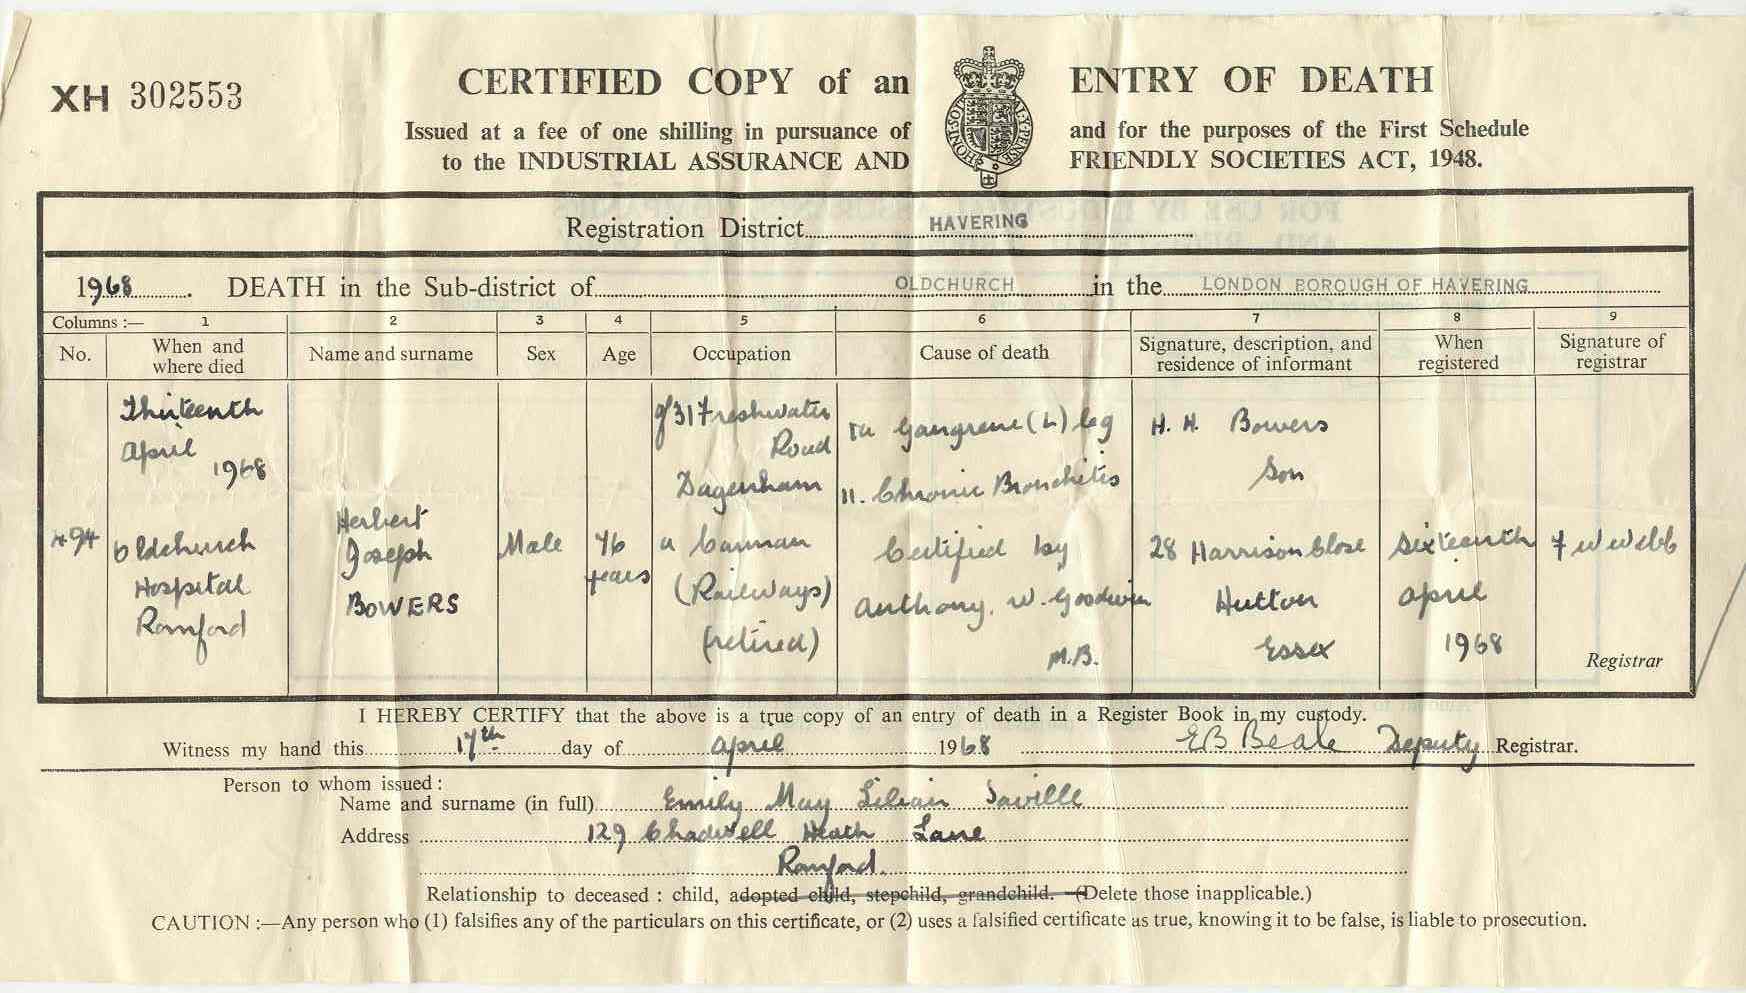 XH 302553
CERTIFIED COPY of an ENTRY OF DEATH
Issued at a fee of one shilling in pursuance of and for the purposes of the First Schedule
to the INDUSTRIAL ASSURANCE AND FRIENDLY SOCIETIES ACT, 1948.
HONI·SOIT
Registration District HAVERING
1968. DEATH in the Sub-district of OLDCHURCH in the LONDON BOROUGH OF HAVERING
Columns :— 1 2 3 4 5 6 7 8 9
No.
When and
where died
Name and surname
Sex
Age
Occupation
Cause of death
Signature, description, and
residence of informant
When
registered
Signature of
registrar
494
Thirteenth
April
1968
Oldchurch
Hospital
Romford
Herbert
Joseph
BOWERS
Male
76
years
of 317 Freshwater
Road
Dagenham
a Carman
(Railways)
(retired)
Ia Gangrene (L) leg
II. Chronic Bronchitis
Certified by
Anthony. W. Goodwin
M.B.
H. H. Bowers
Son
28 Harrison Close
Hutton
Essex
Sixteenth
April
1968
F W Webb
Registrar
I HEREBY CERTIFY that the above is a true copy of an entry of death in a Register Book in my custody.
Witness my hand this 17th day of April 1968 EB Beale Deputy Registrar.
Person to whom issued :
Name and surname (in full) Emily May Lilian Saville
Address 129 Chadwell Heath Lane
Romford.
Relationship to deceased : child, adopted child, stepchild, grandchild. (Delete those inapplicable.)
CAUTION :—Any person who (1) falsifies any of the particulars on this certificate, or (2) uses a falsified certificate as true, knowing it to be false, is liable to prosecution.